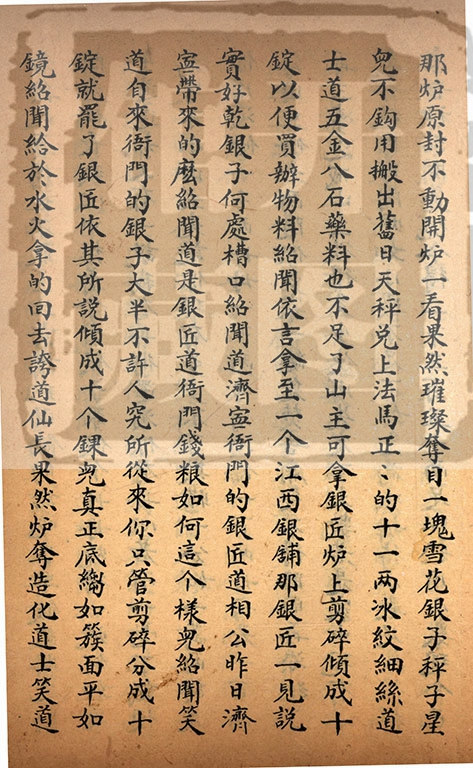 那炉原封不動開炉一看果然璀璨奪目一塊雪花銀子秤子星
兒不鈎用搬出舊日天秤兑上法馬正〻的十一两氷紋細絲道
士道五金八石藥料也不足了山主可拿銀匠炉上剪碎傾成十
錠以便買辦物料紹聞依言拿至一个江西銀舖那銀匠一見説
實好乾銀子何處槽口紹聞道濟寍衙門的銀匠道相公昨日濟
寍帶來的麽紹聞道是銀匠道衙門錢粮如何這个樣兒紹聞笑
道自來衙門的銀子大半不許人究所從來你只管剪碎分成十
錠就罷了銀匠依其所説傾成十个錁兒真正底縐如簇面平如
鏡紹聞給於水火拿的回去誇道仙長果然炉奪造化道士笑道